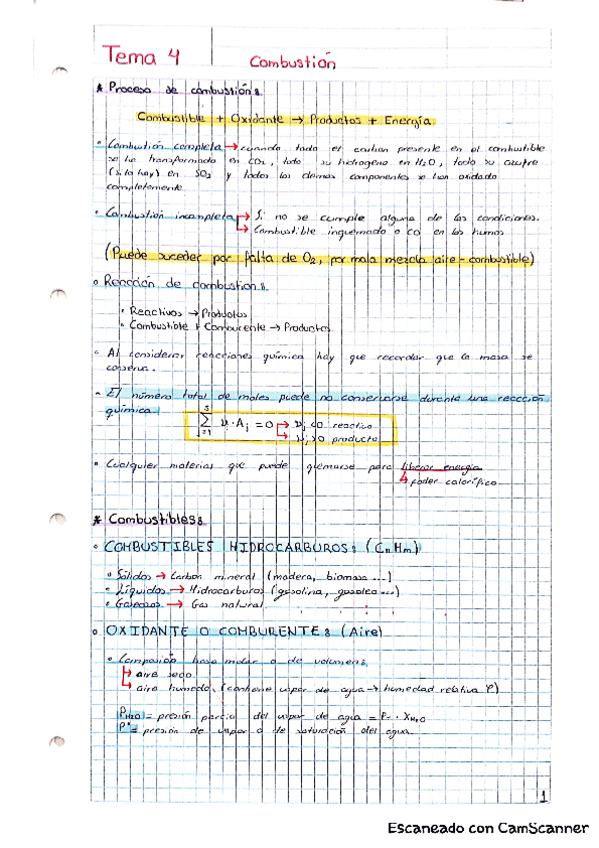 Tema 4 Combustión
* Proceso de combustión:
Combustible + Oxidante → Productos + Energía
• Combustión completa → cuando todo el carbon presente en el combustible
se ha transformado en CO₂, todo su hidrogeno en H₂O, todo su azufre
(si lo hay) en SO₂ y todos los demas componentes se han oxidado
completamente.
• Combustión incompleta → Si no se cumple alguna de las condiciones.
↳ Combustible inquemado o CO en los humos
(Puede suceder por falta de O₂, por mala mezcla aire-combustible)
o Reacción de combustion:
• Reactivos → Productos
• Combustible + Comburente → Productos
• Al considerar reacciones química hay que recordar que la masa se
conserva.
• El número total de moles puede no conservarse durante una reacción
química
5
∑ νᵢ · Aᵢ = 0 → νᵢ <0 reactivo
i=1 ↳ νᵢ >0 producto
• Cualquier material que puede quemarse para liberar energía
↳ poder calorífico
* Combustibles:
• COMBUSTIBLES HIDROCARBUROS: (CnHm)
• Sólidos → Carbón mineral (madera, biomasa ...)
• Líquidos → Hidrocarburos (gasolina, gasoleo ...)
• Gaseosos → Gas natural.
o OXIDANTE O COMBURENTE: (Aire)
• Composión base molar o de volumen:
↳ aire seco
↳ aire humedo. (contiene vapor de agua → humedad relativa φ)
PH₂O = presión parcial del vapor de agua = PT · XH₂O
P* = presión de vapor o de saturación del agua.
1
Escaneado con CamScanner